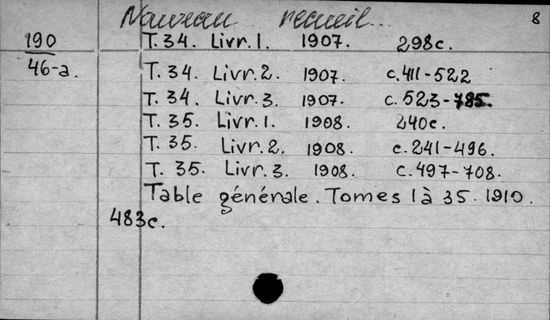 Nouveau recueil... 8
190 T. 34. Livr. 1. 1907. 298c.
46-a. T. 34. Livr. 2. 1907. c. 411-522
T. 34. Livr. 3. 1907. c. 523-785.
T. 35. Livr. 1. 1908. 240c.
T. 35. Livr. 2. 1908. c. 241-496.
T. 35. Livr. 3. 1908. c. 497-708.
Table générale. Tomes 1 à 35. 1910.
483c.